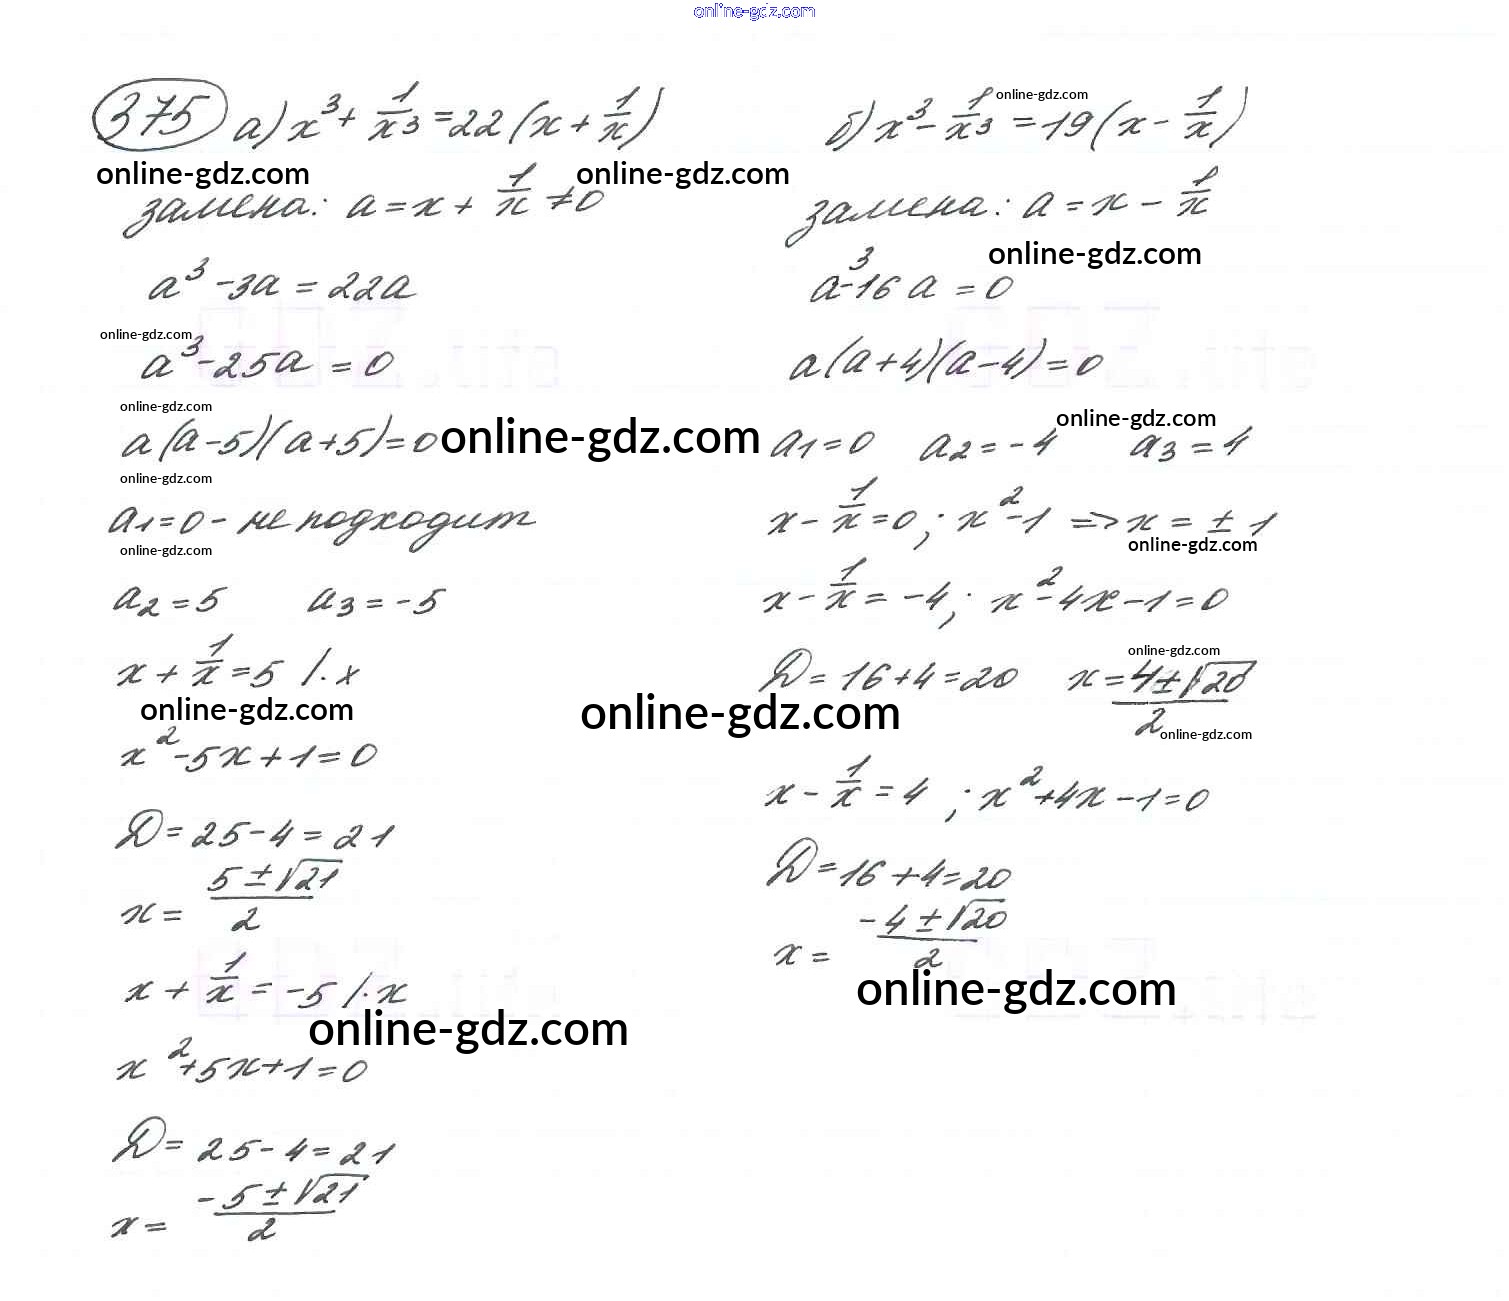 online-gdz.com
375 а) x³ + 1/x³ = 22(x + 1/x)
online-gdz.com online-gdz.com
замена: a = x + 1/x ≠ 0
a³ - 3a = 22a
online-gdz.com
a³ - 25a = 0
online-gdz.com
a(a-5)(a+5) = 0
online-gdz.com
online-gdz.com
a₁ = 0 - не подходит
online-gdz.com
a₂ = 5 a₃ = -5
x + 1/x = 5 /·x
online-gdz.com
x² - 5x + 1 = 0
D = 25 - 4 = 21
x = (5 ± √21)/2
x + 1/x = -5 /·x
online-gdz.com
x² + 5x + 1 = 0
D = 25 - 4 = 21
x = (-5 ± √21)/2
online-gdz.com
б) x³ - 1/x³ = 19(x - 1/x)
замена: a = x - 1/x
online-gdz.com
a³ - 16a = 0
a(a+4)(a-4) = 0
online-gdz.com
a₁ = 0 a₂ = -4 a₃ = 4
x - 1/x = 0; x² - 1 => x = ± 1
online-gdz.com
x - 1/x = -4; x² - 4x - 1 = 0
online-gdz.com
D = 16 + 4 = 20 x = (4 ± √20)/2
online-gdz.com
online-gdz.com
x - 1/x = 4; x² + 4x - 1 = 0
D = 16 + 4 = 20
x = (-4 ± √20)/2
online-gdz.com